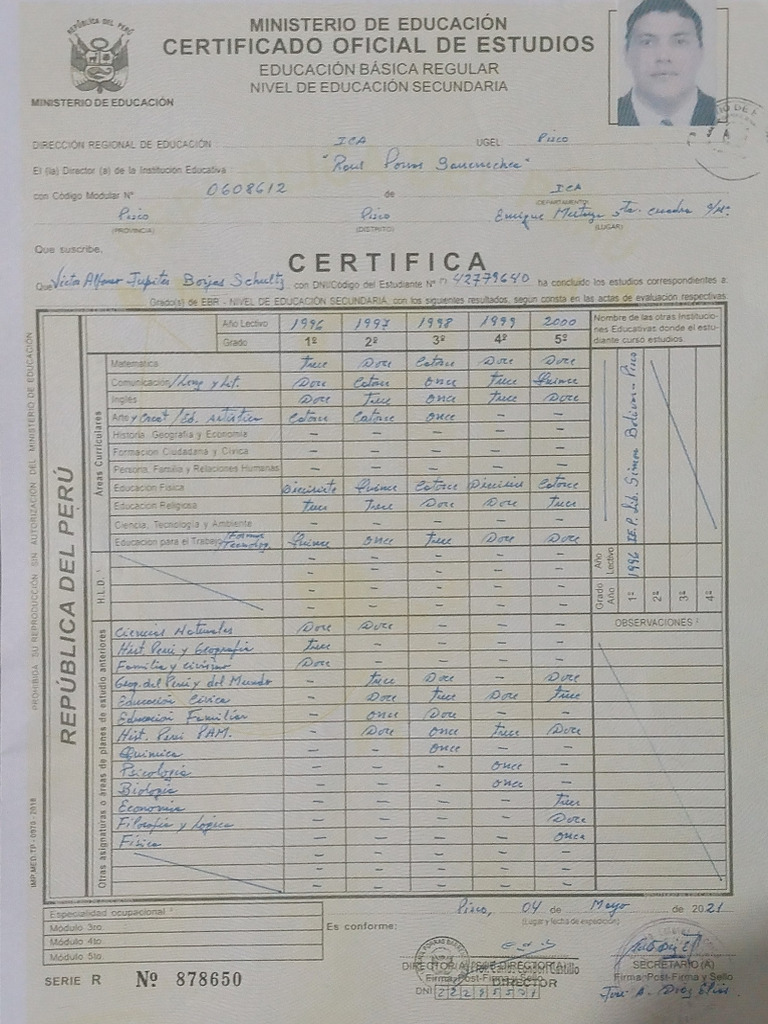 REPÚBLICA DEL PERÚ
MINISTERIO DE EDUCACIÓN
MINISTERIO DE EDUCACIÓN
CERTIFICADO OFICIAL DE ESTUDIOS
EDUCACIÓN BÁSICA REGULAR
NIVEL DE EDUCACIÓN SECUNDARIA
DIRECCIÓN REGIONAL DE EDUCACIÓN ICA UGEL Pisco
El (la) Director (a) de la Institución Educativa "Raúl Porras Barrenechea"
con Código Modular Nº 0608612 de ICA
(DEPARTAMENTO)
Pisco Pisco Enrique 5ta. cuadra S/Nº
(PROVINCIA) (DISTRITO) (LUGAR)
Que suscribe,
CERTIFICA
Que Victor Alfonso Borjas Schultz, con DNI/Código del Estudiante Nº 42779640 ha concluido los estudios correspondientes a
Grado(s) de EBR - NIVEL DE EDUCACIÓN SECUNDARIA, con los siguientes resultados, según consta en las actas de evaluación respectivas
Año Lectivo 1996 1997 1998 1999 2000
Grado 1º 2º 3º 4º 5º
Nombre de las otras Instituciones Educativas donde el estudiante cursó estudios.
Áreas Curriculares
Matemática Trece Doce Catorce Doce Doce
Comunicación/Leng y Lit. Doce Catorce Once Trece Quince
Inglés Doce Trece Once Trece Doce
Arte y Creat/Ed. Artística Catorce Catorce Once — —
Historia, Geografía y Economía — — — — —
Formación Ciudadana y Cívica — — — — —
Persona, Familia y Relaciones Humanas — — — — —
Educación Física Diecisiete Quince Catorce Catorce
Educación Religiosa Trece Trece Doce Doce Trece
Ciencia, Tecnología y Ambiente — — — — —
Educación para el Trabajo Quince Once Trece Doce Doce
H.L.D. ¹
— — — — —
— — — — —
— — — — —
— — — — —
Otras asignaturas o áreas de planes de estudio anteriores
Ciencias Naturales Doce Doce — — —
Hist. Perú y Geografía Trece — — — —
Familia y civismo Doce — — — —
Geog. del Perú y del Mundo — Trece Doce — Doce
Educación Cívica — Doce Trece Doce Trece
Educación Familiar — Once Doce — —
Hist. Perú — Doce Once Trece Doce
Química — — Once — —
Psicología — — — Once —
Biología — — — Once —
Economía — — — — Trece
Filosofía y Lógica — — — — Doce
Física — — — — Once
— — — — —
— — — — —
— — — — —
1996 I.E.P. Lib. Simon Bolivar - Pisco
Año Lectivo
Grado Año 1º 2º 3º 4º
OBSERVACIONES ²
REPÚBLICA DEL PERÚ
PROHIBIDA SU REPRODUCCIÓN SIN AUTORIZACIÓN DEL MINISTERIO DE EDUCACIÓN
IMP.MED.TP - 0973 - 2018
Especialidad ocupacional ³
Módulo 3ro
Módulo 4to
Módulo 5to
Pisco, 04 de Mayo de 2021
(Lugar y fecha de expedición)
Es conforme:
SERIE R Nº 878650
DIRECTOR(A)/SUB DIRECTOR(A)
Firma, Post-Firma y Sello
DIRECTOR
DNI
SECRETARIO (A)
Firma, Post-Firma y Sello
José A.